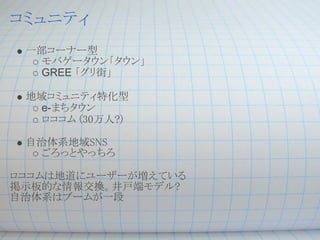 コミュニティ
● 一部コーナー型
○ モバゲータウン「タウン」
○ GREE 「グリ街」
● 地域コミュニティ特化型
○ e-まちタウン
○ ロココム (30万人?)
● 自治体系地域SNS
○ ごろっとやっちろ
ロココムは地道にユーザーが増えている
掲示板的な情報交換。井戸端モデル?
自治体系はブームが一段